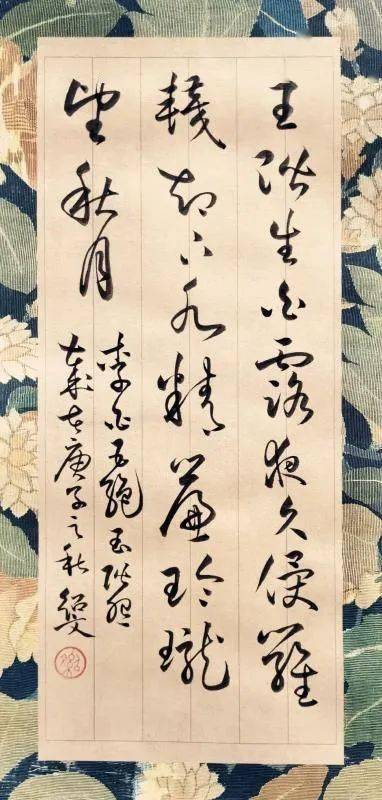 玉階生白露夜久侵羅
襪却下水精簾玲瓏
望秋月
李白五絕玉階怨
歲在庚子之秋